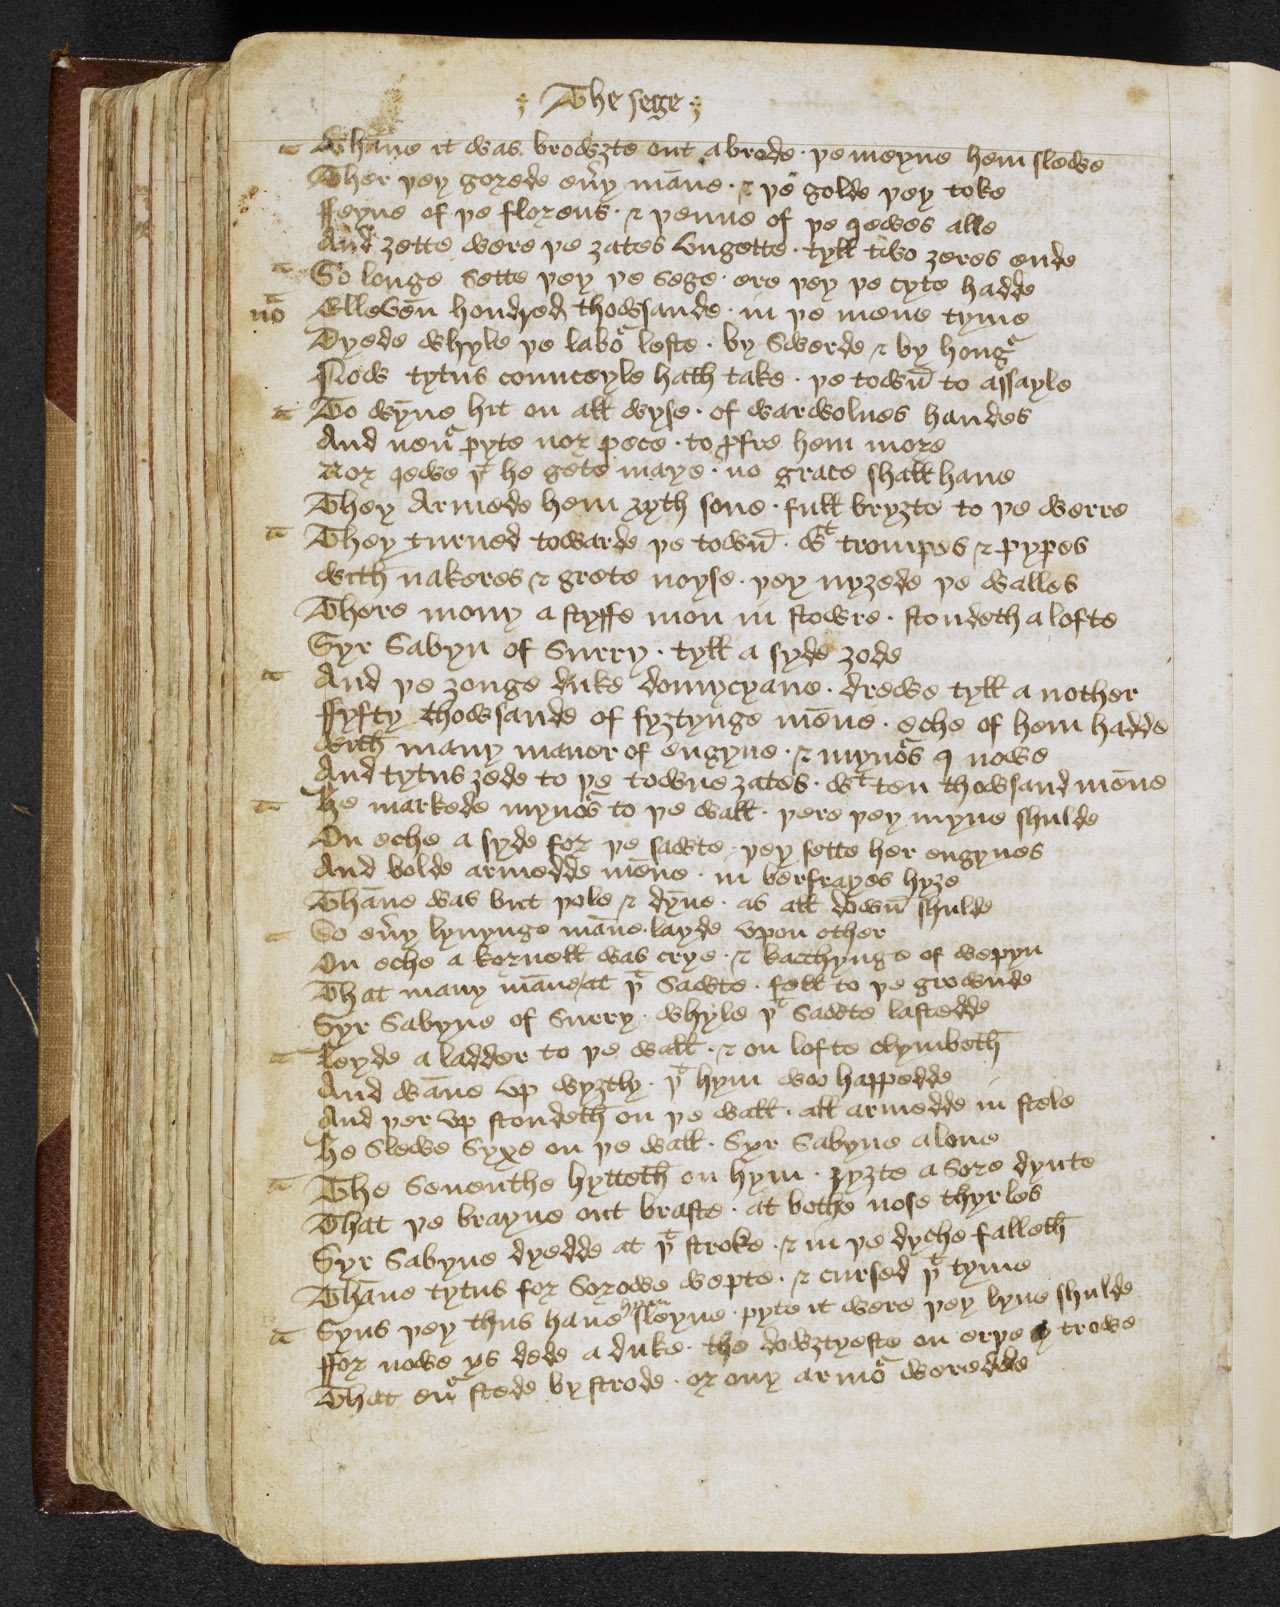 The sege
Whāne it was browȝte out abrode · þe meyne hem slewe
Ther þey gorede euͬy māne · ⁊ þe golde þey toke
ffeyne of þe florens · ⁊ þenne of þe jewes alle
And ȝette were þe ȝates vngette · tyll two ȝeres ende
So longe sette þey þe sege · ere þey þe cyte hadde
nō Elleven̄ hondred thowsande · in þe mene tyme
Dyede whyle þe laboᵣ leste · by swerde ⁊ by hongᵣ
Now tytus counceyle hath take · þe town̄ to assayle
To wȳne hit on all wyse · of warwolues handes
And neuᵣ pyte nor pece · to ꝓfre hem more
Nor jewe þᵗ he gete maye · no grace shall haue
They Armede hem ryth sone · full bryȝte to þe werre
They turned towarde þe town̄ · wᵗ trompes ⁊ pypes
With nakeres ⁊ grete noyse · þey nyȝede þe walles
There mony a styffe mon in stowre · stondeth a lofte
Syr Sabyn of Surry · tyll a syde ȝode
And þe ȝonge duke domycyane · drewe tyll a nother
ffyfty thowsande of fyȝtynge mēne · eche of hem hadde
With many maner of engyne · ⁊ mynoᵣs j nowe
And tytus ȝede to þe towne ȝates · wᵗ ten thowsand mēne
he markede mynoᵣs to þe wall · þere þey myne shulde
On eche a syde for þe sawte · þey sette her engynes
And bolde armedde mēne · in berfrayes hyȝe
Thāne was but pole ⁊ dȳne · as all down̄ shulde
So euͬy lyuynge māne · layde vpon other
On eche a kornell was crye · ⁊ bacchynge of wepyn
That many māne at þᵗ Sawte · fell to þe grownde
Syr Sabyne of Surry · whyle þᵗ Sawte lastedde
Leyde a ladder to þe wall · ⁊ on lofte clymbeth
And wāne vp wyȝtly · þᵗ hym woo happedde
And þer vp stondeth on þe wall · all armedde in stele
he slewe Syxe on þe wall · Syr Sabyne alone
The Seuenthe hytteth on hym · ryȝte a Sore dynte
That þe brayne out braste · at bothe nose thyrles
Syr Sabyne dyedde at þᵗ stroke · ⁊ in þe dyche falleth
Thāne tytus for Sorowe wepte · ⁊ cursed þᵗ tyme
Syns þey thus haue hym sleyne · pyte it were þey lyue shulde
ffor nowe ys dede a duke · the dowȝtyeste on erþe j trowe
That euᵣ stede by strode · or ony armoᵣ weredde